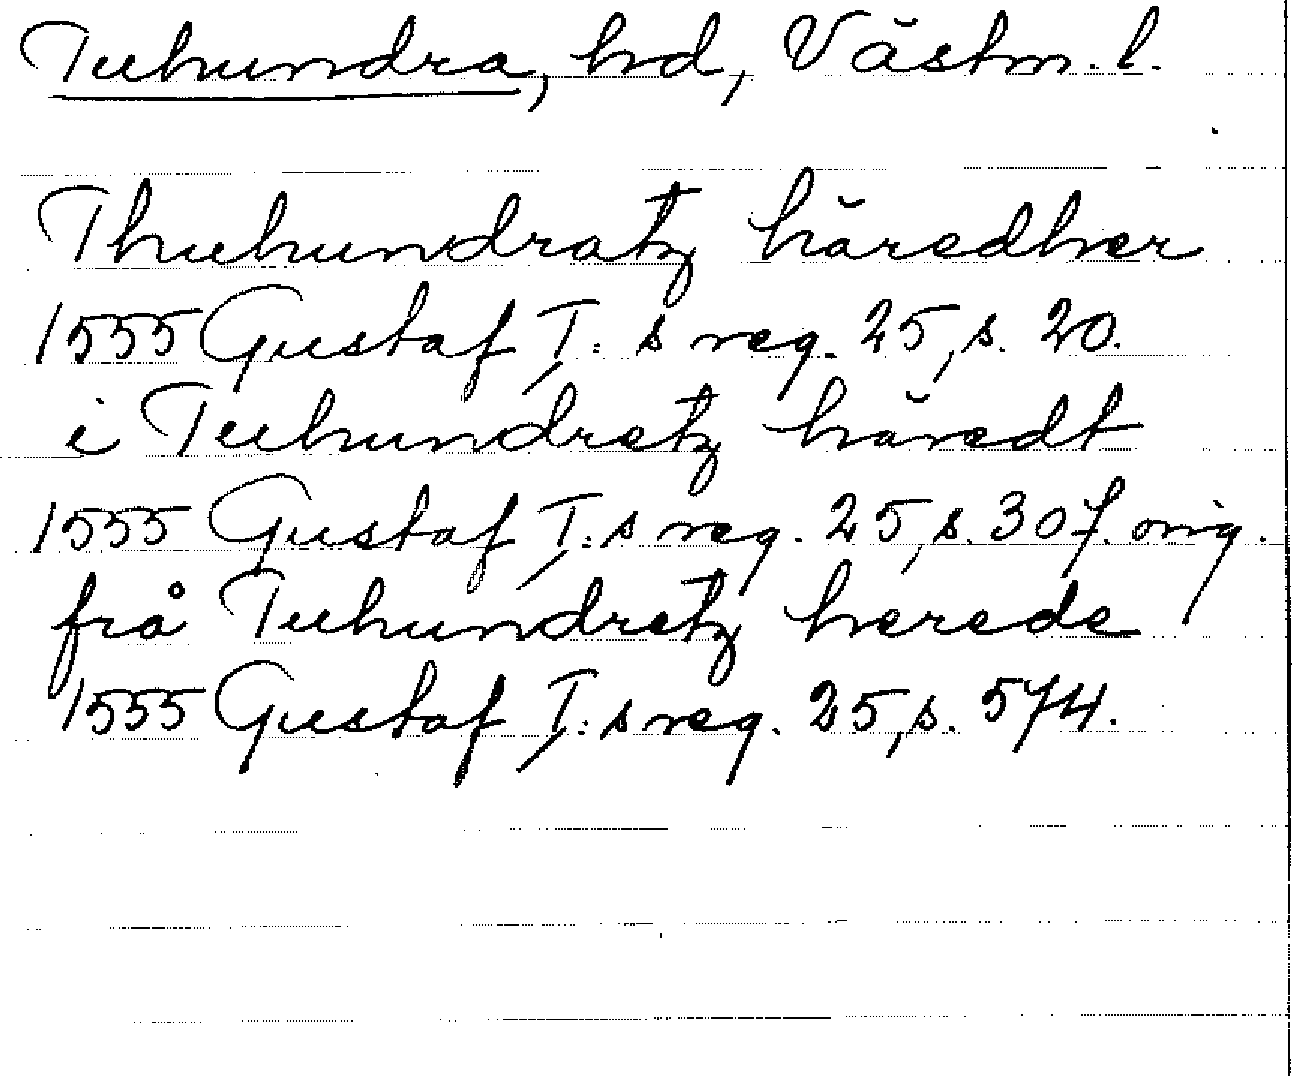 Tuhundra, hd, Västm. l.
Thuhundratz häredher
1555 Gustaf I: s reg. 25, s. 20.
i Tuhundretz häredt
1555 Gustaf I: s reg. 25, s. 307. orig.
frå Tuhundretz herede
1555 Gustaf I: s reg. 25, s. 574.